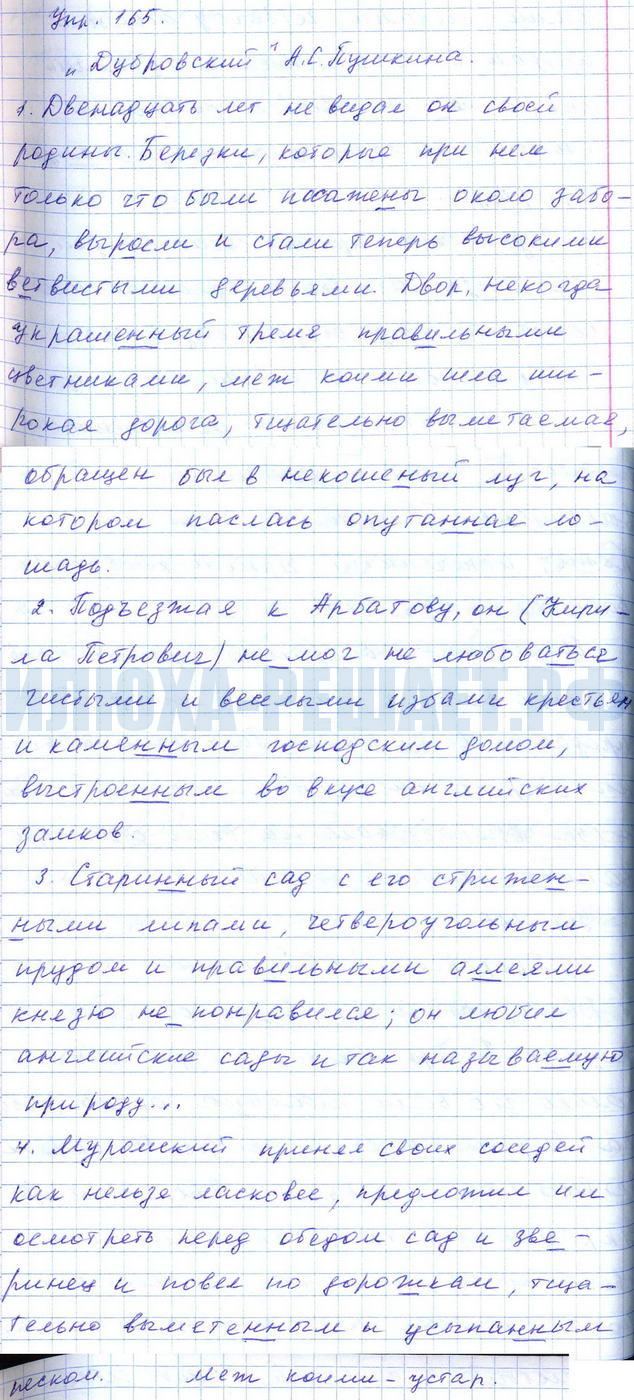 Упр. 165.
„Дубровский" А.С. Пушкина.
1. Двенадцать лет не видал он своей
родины. Березки, которые при нем
только что были посажены около забо-
ра, выросли и стали теперь высокими
ветвистыми деревьями. Двор, некогда
украшенный тремя правильными
цветниками, меж коими шла ши-
рокая дорога, тщательно выметаемая,
обращен был в некошеный луг, на
котором паслась опутанная ло-
шадь.
2. Подъезжая к Арбатову, он (Кири-
ла Петрович) не мог не любоваться
ИЛЮХА-РЕШАЕТ.РФ
чистыми и веселыми избами крестьян
и каменным господским домом,
выстроенным во вкусе английских
замков.
3. Старинный сад с его стрижен-
ными липами, четвероугольным
прудом и правильными аллеями
князю не понравился; он любил
английские сады и так называемую
природу...
4. Муромский принял своих соседей
как нельзя ласковее, предложил им
осмотреть перед обедом сад и зве-
ринец и повел по дорожкам, тща-
тельно выметенным и усыпанным
песком. меж коими - устар.